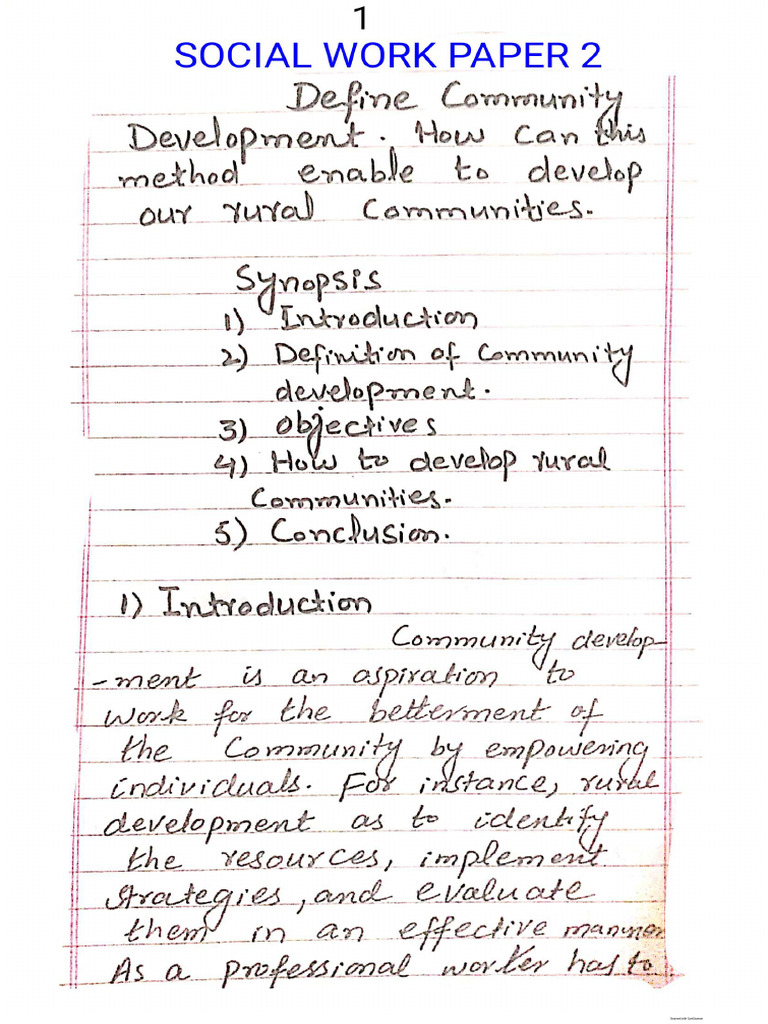 1
SOCIAL WORK PAPER 2
Define Community
Development. How can this
method enable to develop
our rural Communities.
Synopsis
1) Introduction
2) Definition of Community
development.
3) Objectives
4) How to develop rural
Communities.
5) Conclusion.
1) Introduction
Community develop-
-ment is an aspiration to
work for the betterment of
the Community by empowering
individuals. For instance, rural
development as to identify
the resources, implement
strategies, and evaluate
them in an effective manner
As a professional worker has to